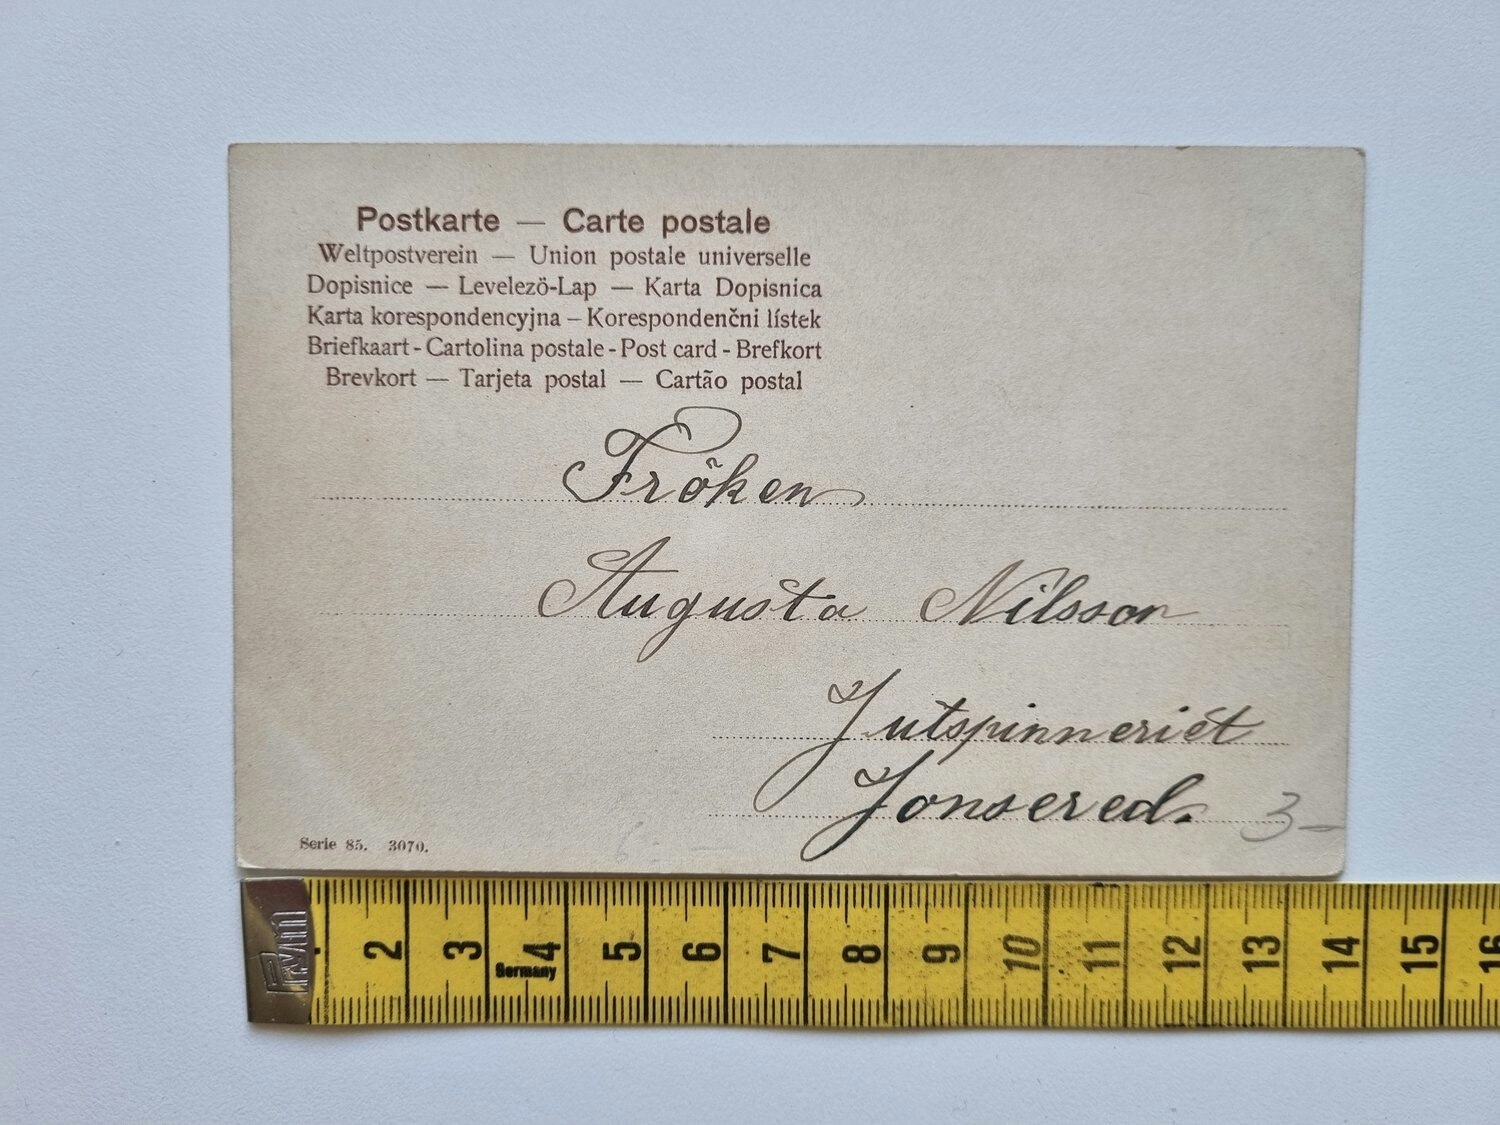 Postkarte — Carte postale
Weltpostverein — Union postale universelle
Dopisnice — Levelezö-Lap — Karta Dopisnica
Karta korespondencyjna – Korespondenčni lístek
Briefkaart - Cartolina postale - Post card - Brefkort
Brevkort — Tarjeta postal — Cartão postal
Fröken
Augusta Nilsson
Jutspinneriet
Jonsered.
3–
Serie 85. 3070.
6
Prym
2 3 4 5 6 7 8 9 10 11 12 13 14 15 16
Germany